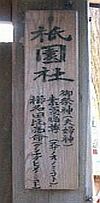 祇園社
御祭神(夫婦神)
素盞嗚尊(スサノオノミコト)
櫛名田比売命(クシナダヒメ)